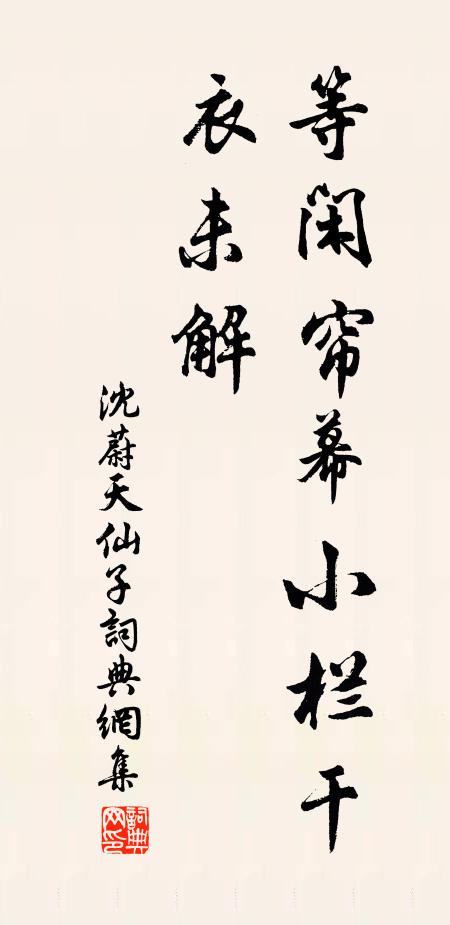 等闲帘幕小栏干
衣未解
沈蔚天仙子詞典網集
詞典網印